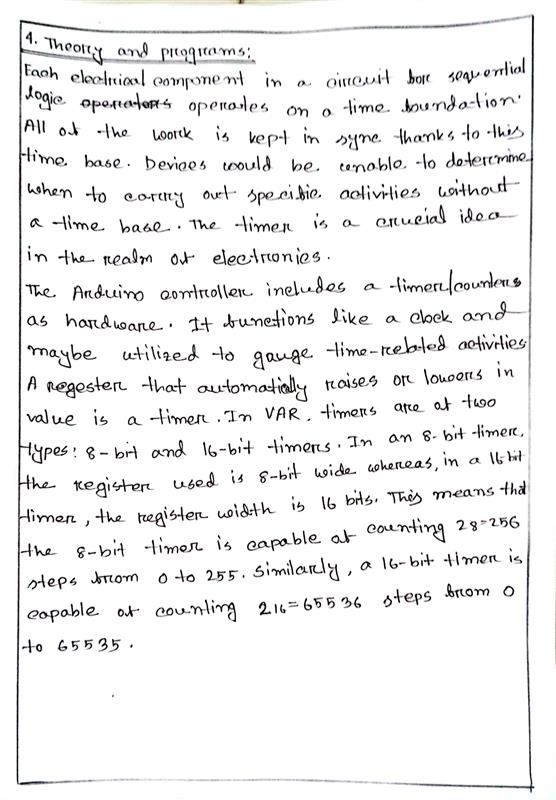 4. Theory and programs:
Each electrical component in a circuit for sequential
logic operators operates on a time foundation.
All of the work is kept in sync thanks to this
time base. Devices would be unable to determine
when to carry out specific activities without
a time base. The timer is a crucial idea
in the realm of electronics.
The Arduino controller includes a timer/counters
as hardware. It functions like a clock and
maybe utilized to gauge time-related activities.
A regester that automatially raises or lowers in
value is a timer. In VAR, timers are of two
types: 8-bit and 16-bit timers. In an 8-bit timer,
the register used is 8-bit wide whereas, in a 16 bit
timer, the register width is 16 bits. This means that
the 8-bit timer is capable of counting 28=256
steps from 0 to 255. Similarly, a 16-bit timer is
capable of counting 216=65536 steps from 0
to 65535.